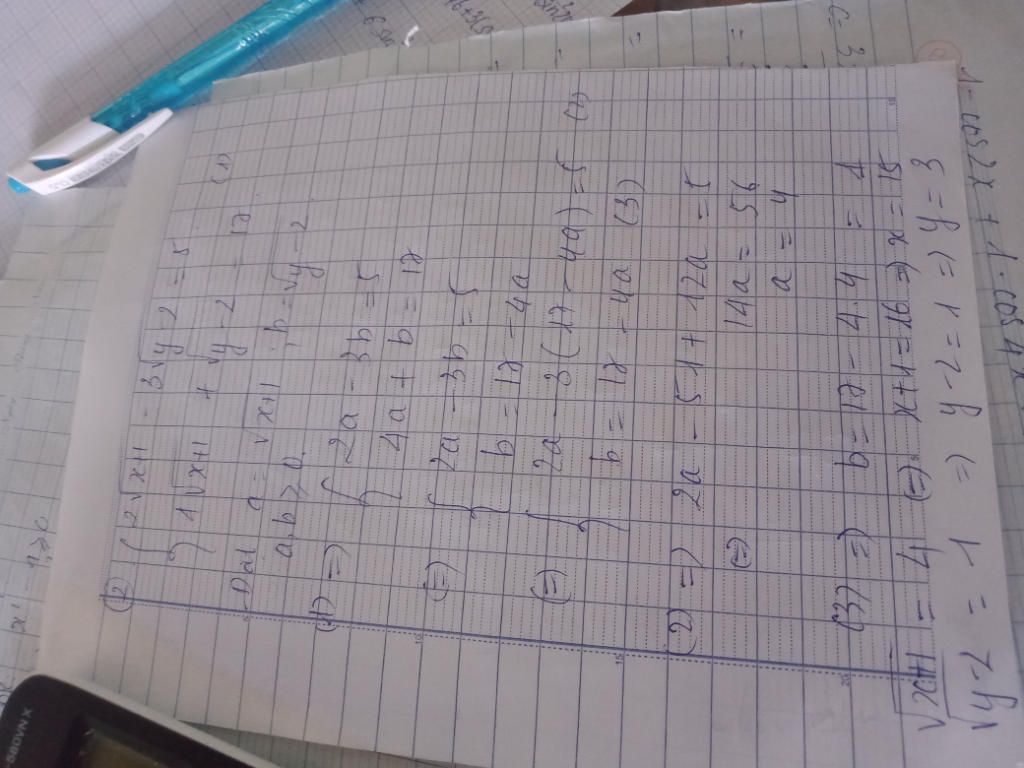 ② { 2√x+1 - 3√y-2 = 5
4√x+1 + √y-2 = 17 (1)
- Đặt a = √x+1 ; b = √y-2
a, b ≥ 0.
(1) => { 2a - 3b = 5
4a + b = 17
(=) { 2a - 3b = 5
b = 17 - 4a
(=) { 2a - 3(17 - 4a) = 5 (2)
b = 17 - 4a (3)
(2) => 2a - 51 + 12a = 5
(=) 14a = 56
a = 4
(3) => b = 17 - 4.4 = 1
√x+1 = 4 (=) x+1 = 16 => x = 15
√y-2 = 1 => y-2 = 1 => y = 3